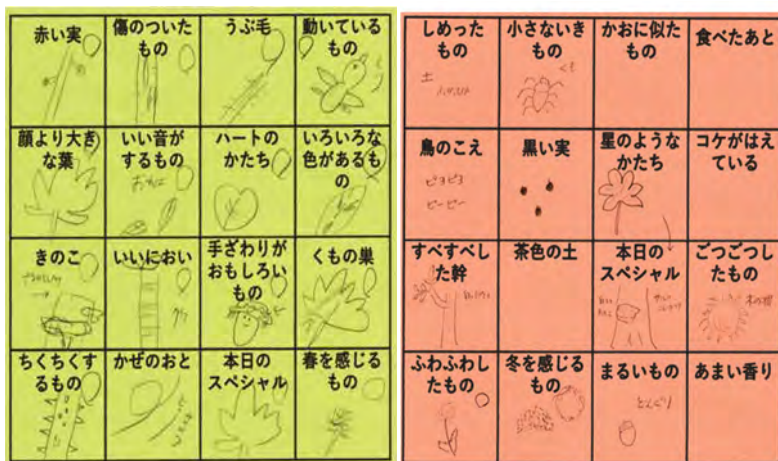 赤い実
傷のついた
もの
うぶ毛
動いている
もの
顔より大き
な葉
いい音が
するもの
おちば
ハートの
かたち
いろいろな
色があるも
の
きのこ
いいにおい
手ざわりが
おもしろい
もの
くもの巣
ちくちくす
るもの
かぜのおと
本日の
スペシャル
春を感じる
もの
しめった
もの
土
小さないき
もの
くも
かおに似た
もの
食べたあと
鳥のこえ
ピヨピヨ
ピーピー
黒い実
星のような
かたち
コケがはえ
ている
すべすべし
た幹
茶色の土
本日の
スペシャル
ごつごつし
たもの
ふわふわし
たもの
冬を感じる
もの
まるいもの
どんぐり
あまい香り